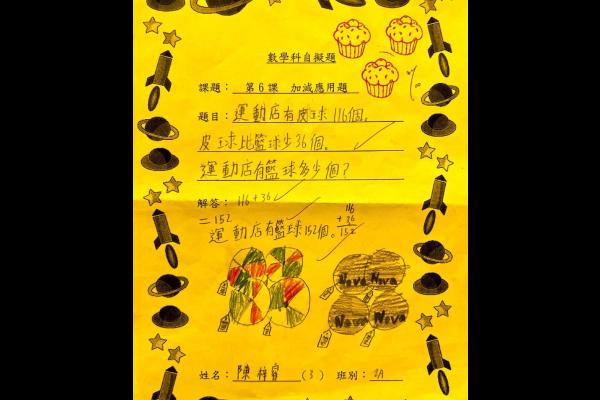 數學科自擬題
課題： 第6課 加減應用題
題目：運動店有皮球116個。
皮球比籃球少36個。
運動店有籃球多少個？
解答： 116+36
=152
116
+ 36
152
運動店有籃球152個。
Nova Nova
Nova Nova
姓名： 陳梓睿 (3) 班別： 2A